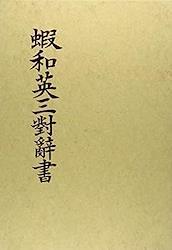 蝦和英三對辭書